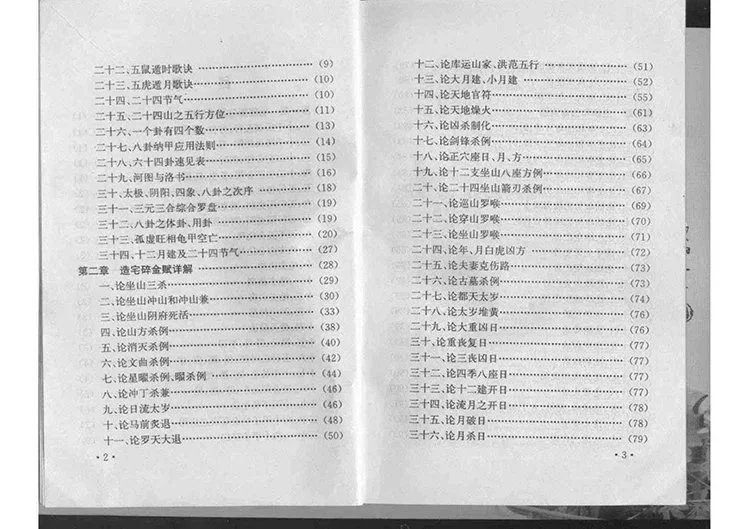 二十二、五鼠遁时歌诀……………………(9)
二十三、五虎遁月歌诀……………………(10)
二十四、二十四节气………………………(10)
二十五、二十四山之五行方位……………(11)
二十六、一个卦有四个数…………………(13)
二十七、八卦纳甲应用法则………………(14)
二十八、六十四卦速见表…………………(15)
二十九、河图与洛书………………………(16)
三十、太极、阴阳、四象、八卦之次序……(18)
三十一、三元三合综合罗盘………………(19)
三十二、八卦之体卦、用卦………………(19)
三十三、孤虚旺相龟甲空亡………………(20)
三十四、十二月建及二十四节气…………(27)
第二章 造宅碎金赋详解…………………(28)
一、论坐山三杀……………………………(29)
二、论坐山冲山和冲山兼…………………(30)
三、论坐山阴府死活………………………(33)
四、论山方杀例……………………………(38)
五、论消灭杀例……………………………(40)
六、论文曲杀例……………………………(42)
七、论星曜杀例、曜杀例…………………(44)
八、论冲丁杀兼……………………………(46)
九、论日流太岁……………………………(46)
十、论马前炙退……………………………(48)
十一、论罗天大退…………………………(50)
·2·
十二、论库运山家、洪范五行……………(51)
十三、论大月建、小月建…………………(52)
十四、论天地官符…………………………(55)
十五、论天地燥火…………………………(61)
十六、论凶杀制化…………………………(63)
十七、论剑锋杀例…………………………(64)
十八、论正穴座日、月、方………………(65)
十九、论十二支坐山八座方例……………(66)
二十、论二十四坐山箭刃杀例……………(67)
二十一、论巡山罗喉………………………(69)
二十二、论穿山罗喉………………………(70)
二十三、论坐山罗喉………………………(71)
二十四、论年、月白虎凶方………………(72)
二十五、论夫妻克伤路……………………(73)
二十六、论古墓杀例………………………(73)
二十七、论都天太岁………………………(74)
二十八、论太岁堆黄………………………(76)
二十九、论大重凶日………………………(76)
三十、论重丧复日…………………………(77)
三十一、论三丧凶日………………………(77)
三十二、论四季八座日……………………(77)
三十三、论十二建开日……………………(77)
三十四、论流月之开日……………………(78)
三十五、论月破日…………………………(78)
三十六、论月杀日…………………………(79)
·3·